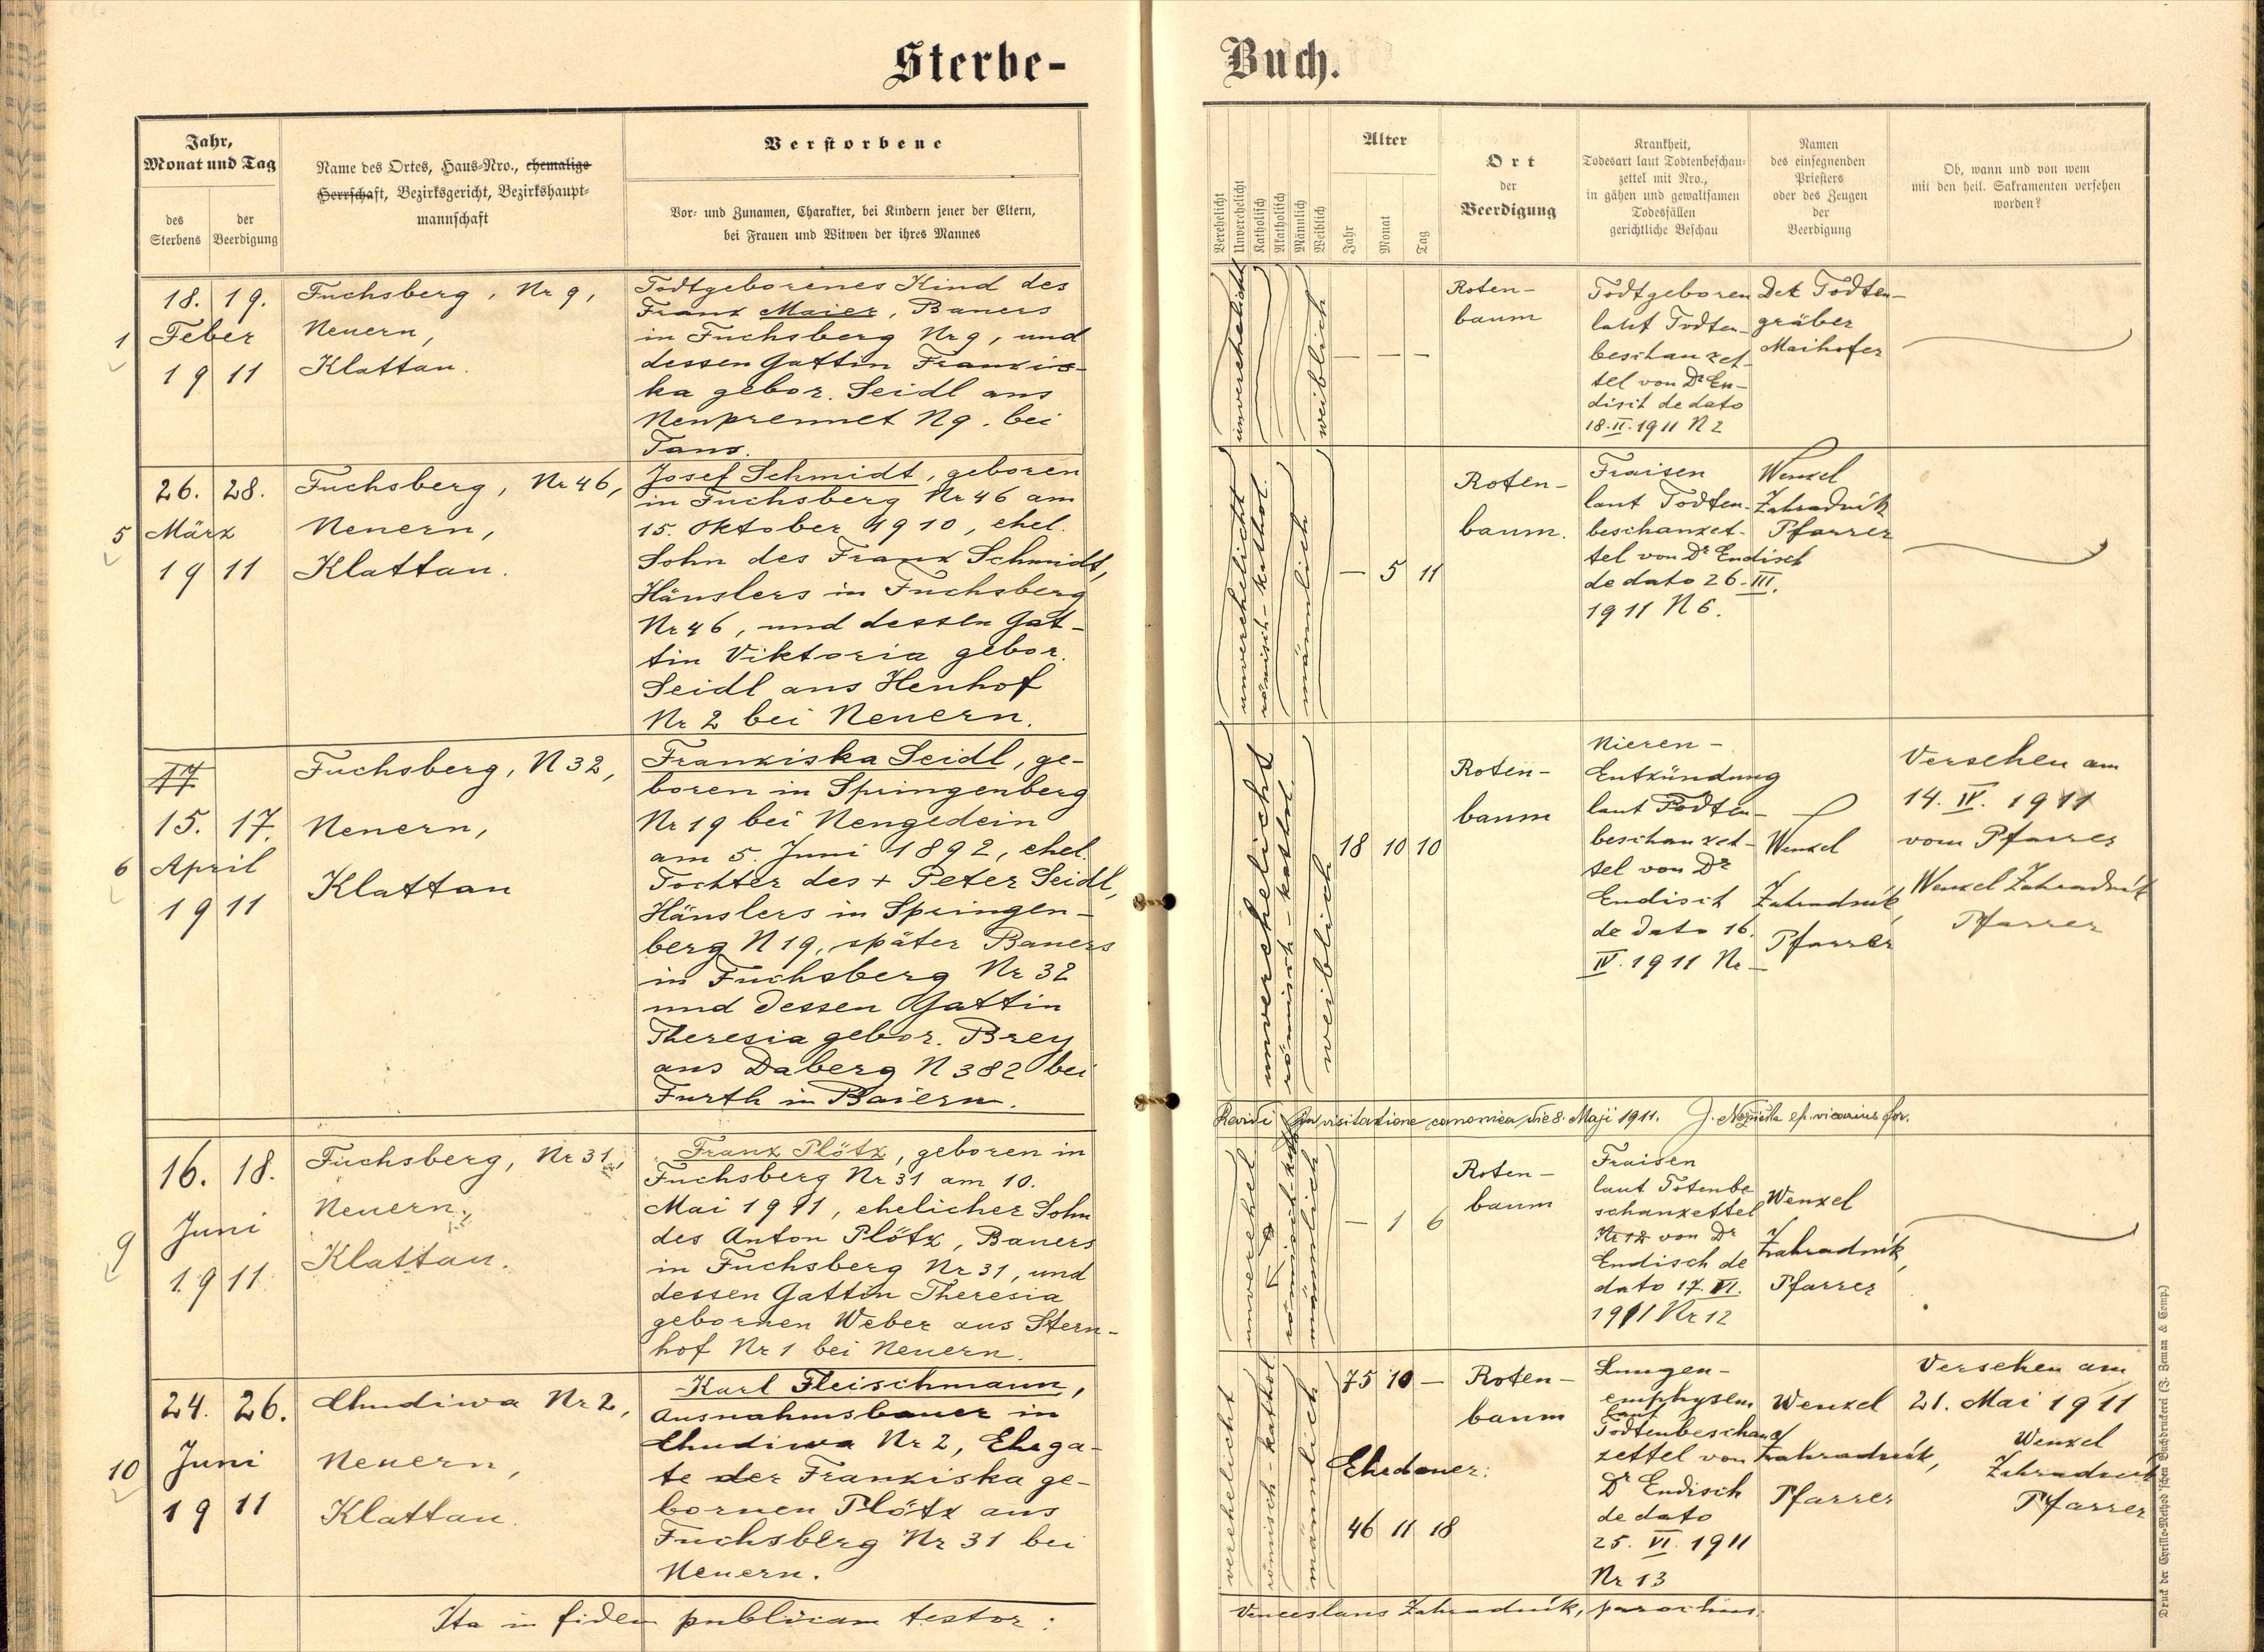 Sterbe-
Buch.
Jahr,
Monat und Tag
des Sterbens
der Beerdigung
Name des Ortes, Haus-Nro., ehemalige
Herrschaft, Bezirksgericht, Bezirkshaupt-
mannschaft
Verstorbene
Vor- und Zunamen, Charakter, bei Kindern jener der Eltern,
bei Frauen und Witwen der ihres Mannes
Verehelicht
Unverehelicht
Katholisch
Akatholisch
Männlich
Weiblich
Alter
Jahr
Monat
Tag
Ort
der
Beerdigung
Krankheit,
Todesart laut Todtenbeschau-
zettel mit Nro.,
in gähen und gewaltsamen
Todesfällen
gerichtliche Beschau
Namen
des einsegnenden
Priesters
oder des Zeugen
der
Beerdigung
Ob, wann und von wem
mit den heil. Sakramenten versehen
worden?
1
18. 19.
Feber
1911
Fuchsberg, Nr 9,
Neuern,
Klattau.
Todtgeborenes Kind des
Franz Maier, Bauers
in Fuchsberg Nr 9, und
dessen Gattin Franzis-
ka gebor. Seidl aus
Neuprennet N 9. bei
Taus.
unverehelicht
weiblich
— — —
Roten-
baum
Todtgeboren
laut Todten-
beschauzet-
tel von Dr En-
disch de dato
18. II. 1911 N 2
Der Todten-
gräber
Maihofer
5
26. 28.
März
1911
Fuchsberg, Nr 46,
Neuern,
Klattau.
Josef Schmidt, geboren
in Fuchsberg Nr 46 am
15. Oktober 1910, ehel.
Sohn des Franz Schmidt,
Häuslers in Fuchsberg
Nr 46, und dessen Gat-
tin Viktoria gebor.
Seidl aus Heuhof
Nr 2 bei Neuern.
unverehelicht
römisch-kathol.
männlich
— 5 11
Roten-
baum.
Fraisen
laut Todten-
beschauzet-
tel von Dr Endisch
de dato 26. III.
1911 N 6.
Wenzel
Zahradník
Pfarrer
6
17
15. 17.
April
1911
Fuchsberg, N 32,
Neuern,
Klattau
Franziska Seidl, ge-
boren in Springenberg
Nr 19 bei Neugedein
am 5. Juni 1892, ehel.
Tochter des + Peter Seidl,
Häuslers in Springen-
berg N 19, später Bauers
in Fuchsberg Nr 32
und dessen Gattin
Theresia gebor. Brey
aus Daberg N 382 bei
Furth in Baiern.
unverehelicht
römisch-kathol.
weiblich
18 10 10
Roten-
baum
Nieren-
Entzündung
laut Todten-
beschauzet-
tel von Dr
Endisch
de dato 16.
IV. 1911 Nr —
Wenzel
Zahradník,
Pfarrer
Versehen am
14. IV. 1911
vom Pfarrer
Wenzel Zahradník
Pfarrer
Revidi in visitatione canonica die 8. Maji 1911. J. ep. vicarius for.
9
16. 18.
Juni
1911
Fuchsberg, Nr 31,
Neuern,
Klattau.
Franz Plötz, geboren in
Fuchsberg Nr 31 am 10.
Mai 1911, ehelicher Sohn
des Anton Plötz, Bauers
in Fuchsberg Nr 31, und
dessen Gattin Theresia
gebornen Weber aus Stern-
hof Nr 1 bei Neuern.
unverehel.
römisch-kath
männlich
— 1 6
Roten-
baum
Fraisen
laut Totenbe
schauzettel
Nr 12 von Dr
Endisch de
dato 17. VI.
1911 Nr 12
Wenzel
Zahradník,
Pfarrer
10
24. 26.
Juni
1911
Chudiwa Nr 2,
Neuern,
Klattau.
Karl Fleischmann,
Ausnahmsbauer in
Chudiwa Nr 2, Ehega-
te der Franziska ge-
bornen Plötz aus
Fuchsberg Nr 31 bei
Neuern.
verehelicht
römisch-kathol
männlich
75 10 —
Ehedauer:
46 11 18
Roten-
baum
Lungen-
emphysem
laut
Todtenbeschau
zettel von
Dr Endisch
de dato
25. VI. 1911
Nr 13
Wenzel
Zahradník,
Pfarrer
Versehen am
21. Mai 1911
Wenzel
Zahradník
Pfarrer
Ita in fidem publicam testor:
Venceslaus Zahradník, parochus.
Druck der Cyrillo-Method'schen Buchdruckerei (J. Zeman & Comp.)